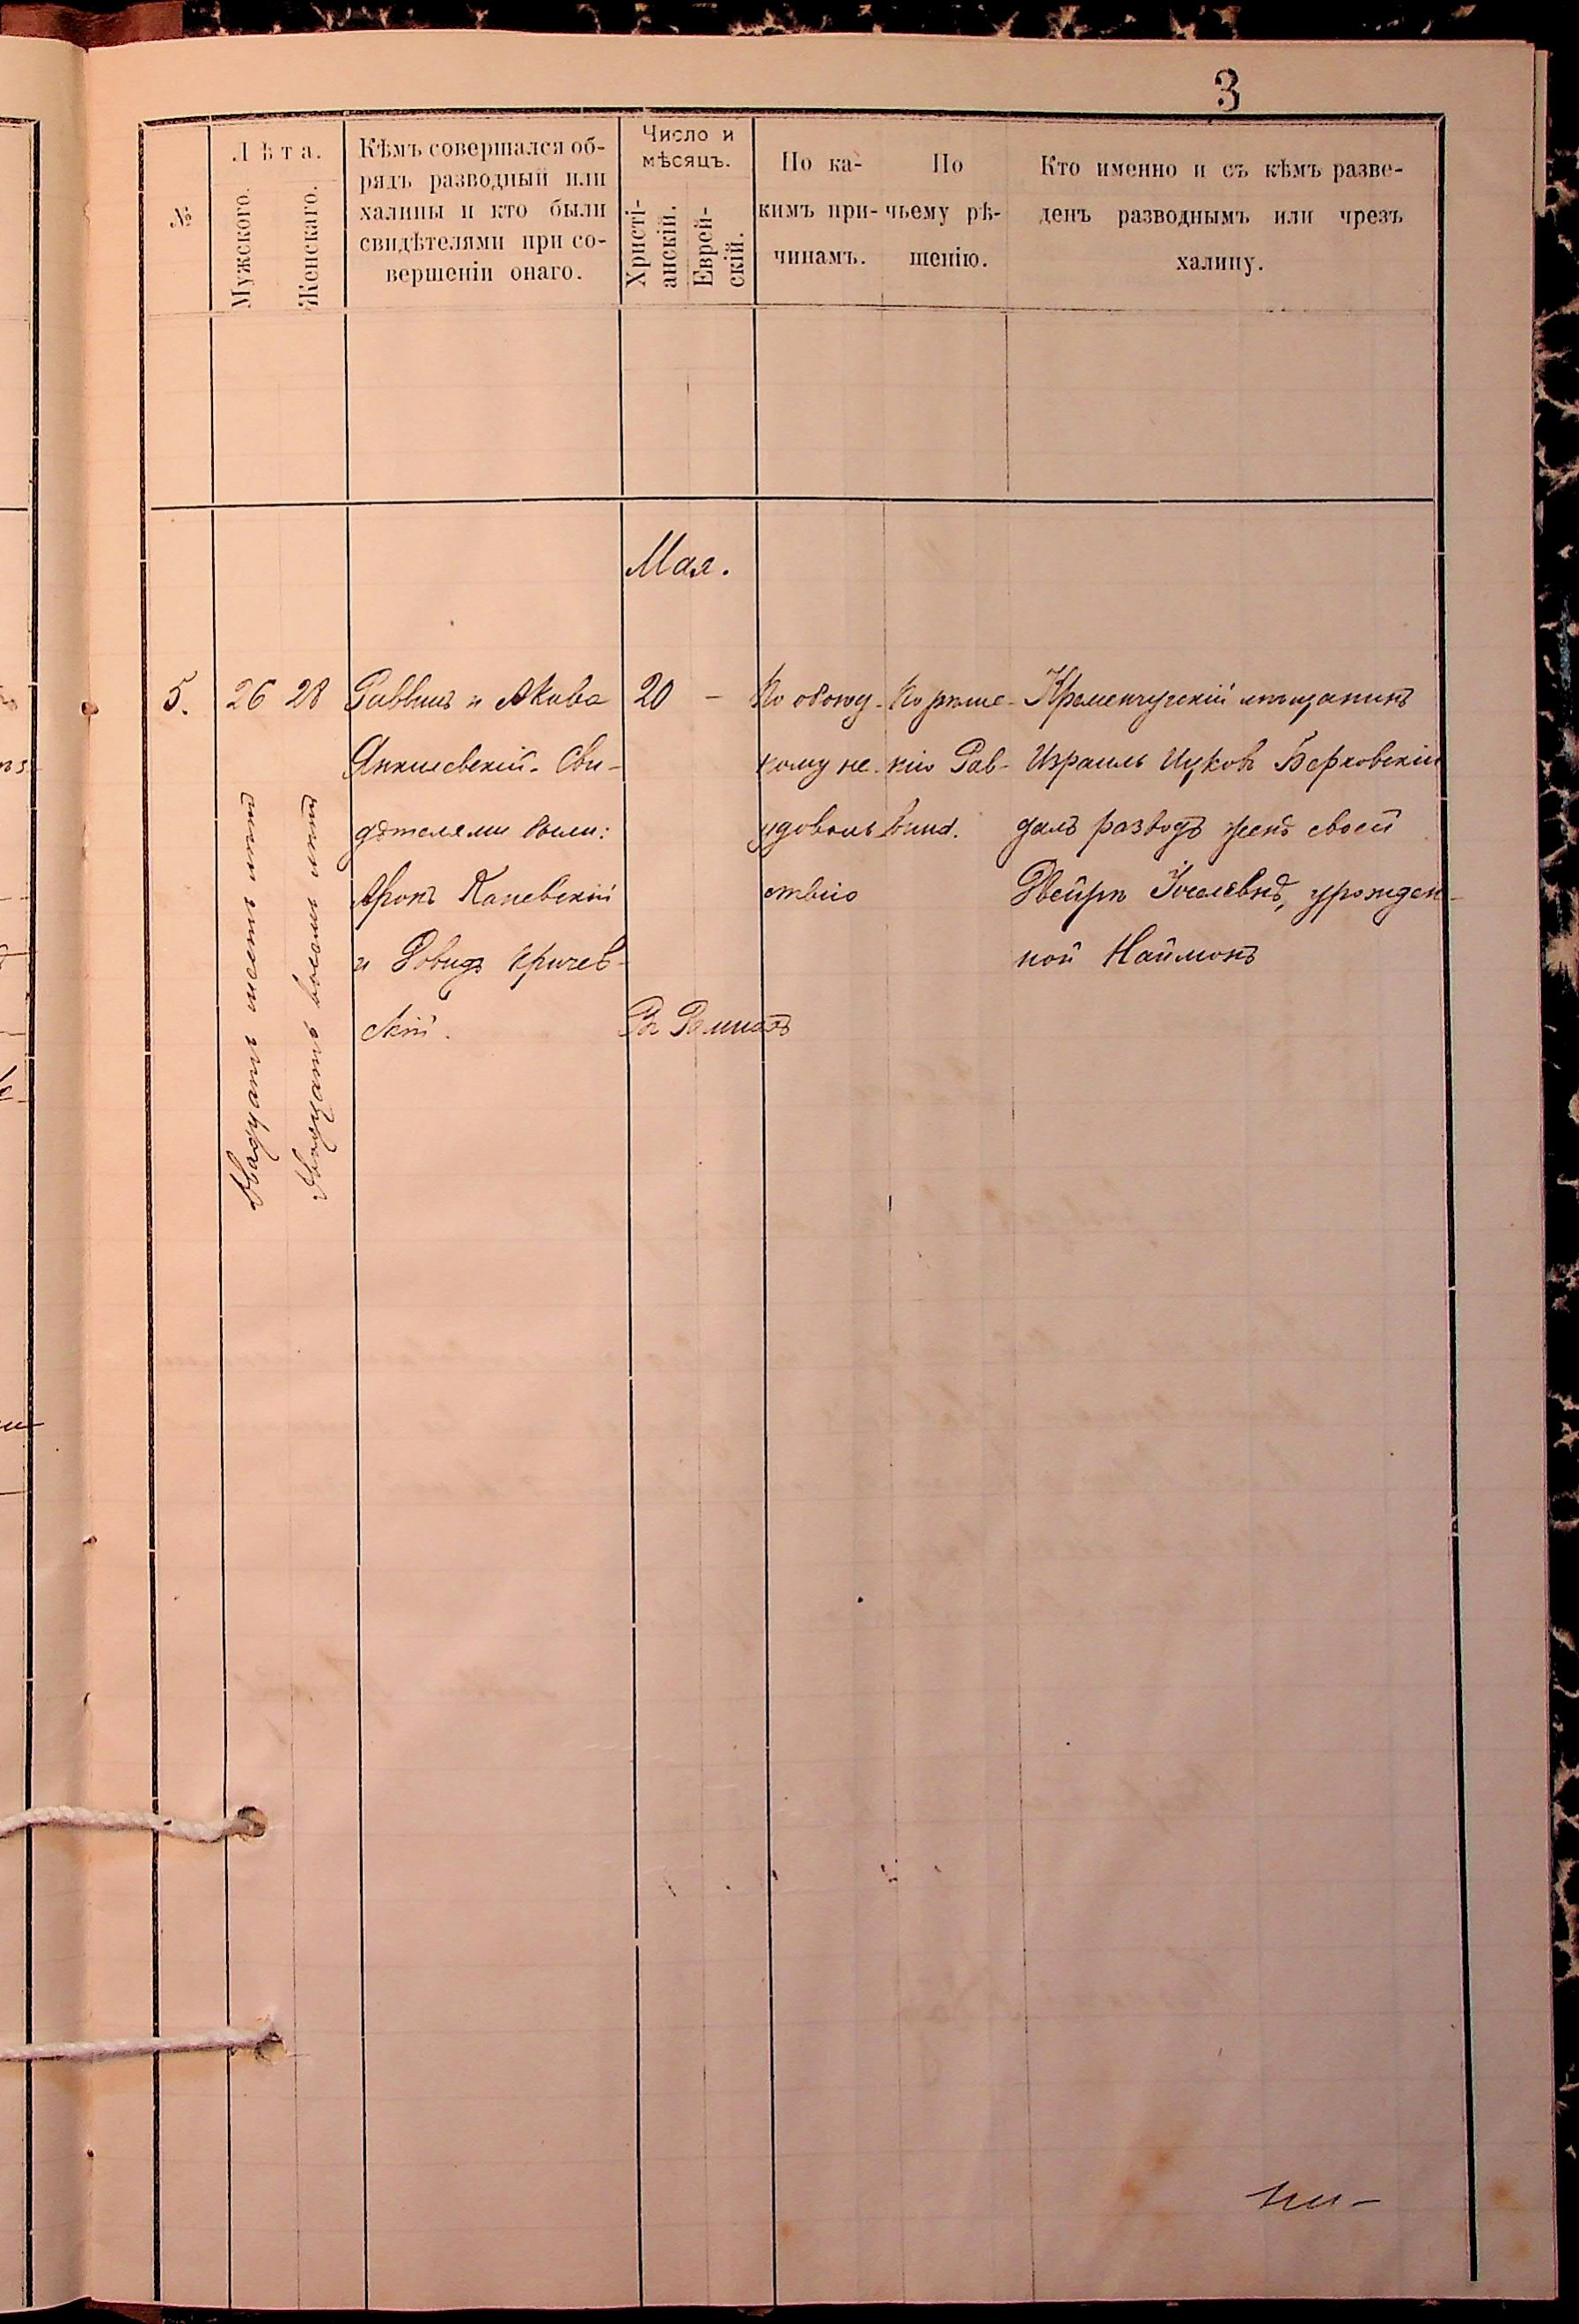 3
№
Лѣта.
Мужского.
Женскаго.
Кѣмъ совершался об-
рядъ разводный или
халицы и кто были
свидѣтелями при со-
вершеніи онаго.
Число и
мѣсяцъ.
Христі-
анскій.
Еврей-
скій.
По ка-
кимъ при-
чинамъ.
По
чьему рѣ-
шенію.
Кто именно и съ кѣмъ разве-
денъ разводнымъ или чрезъ
халицу.
Мая.
5.
26
28
Двадцать шесть лѣтъ
Двадцать восемь лѣтъ
Раввинъ и Акива
Сви-
дѣтелями были:
Аронъ Каневскій
и Довидъ Кричев-
скій.
20 -
Въ Ромнахъ
По обоюд-
ному не-
удоволь
ствію
По рѣше-
нію Рав-
вина.
Кременчугскій мѣщанинъ
Израиль Ицковъ Берковскій
далъ разводъ женѣ своей
Двейрѣ Іоселевнѣ, урожден-
ной Наймонъ